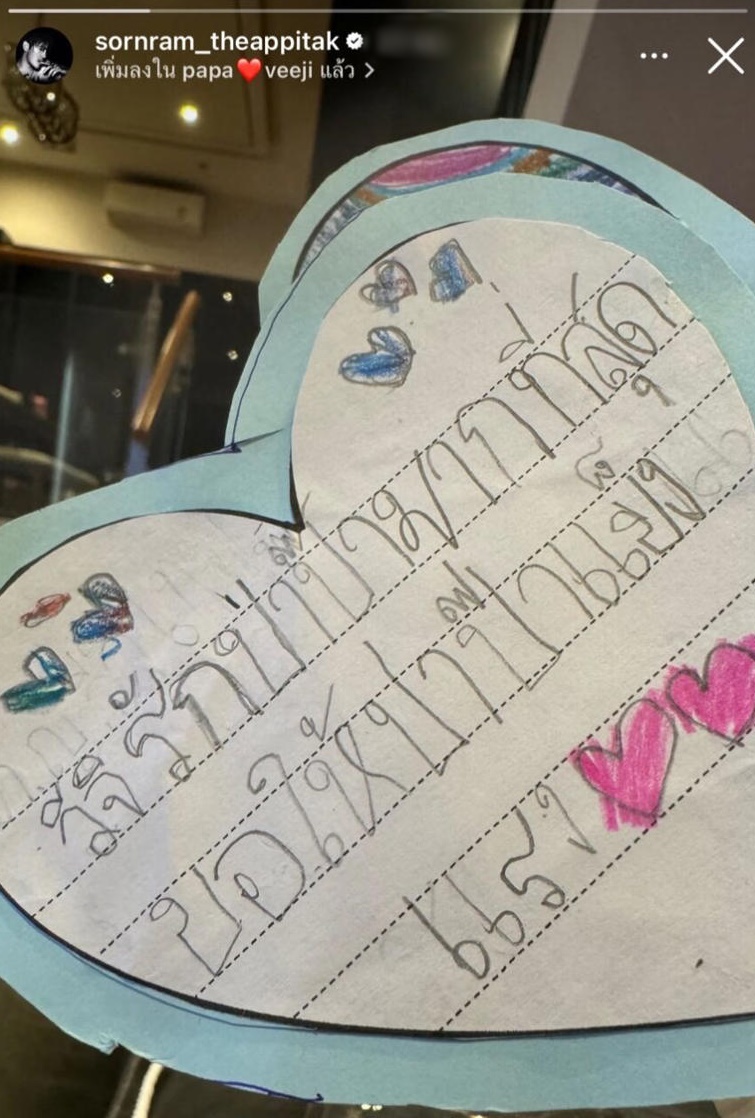 sornram_theappitak
เพิ่มลงใน papa❤️veeji แล้ว >
วีจิรักป่าป๊ามากที่สุด
ขอให้ป่าป๊าแข็ง
แรง